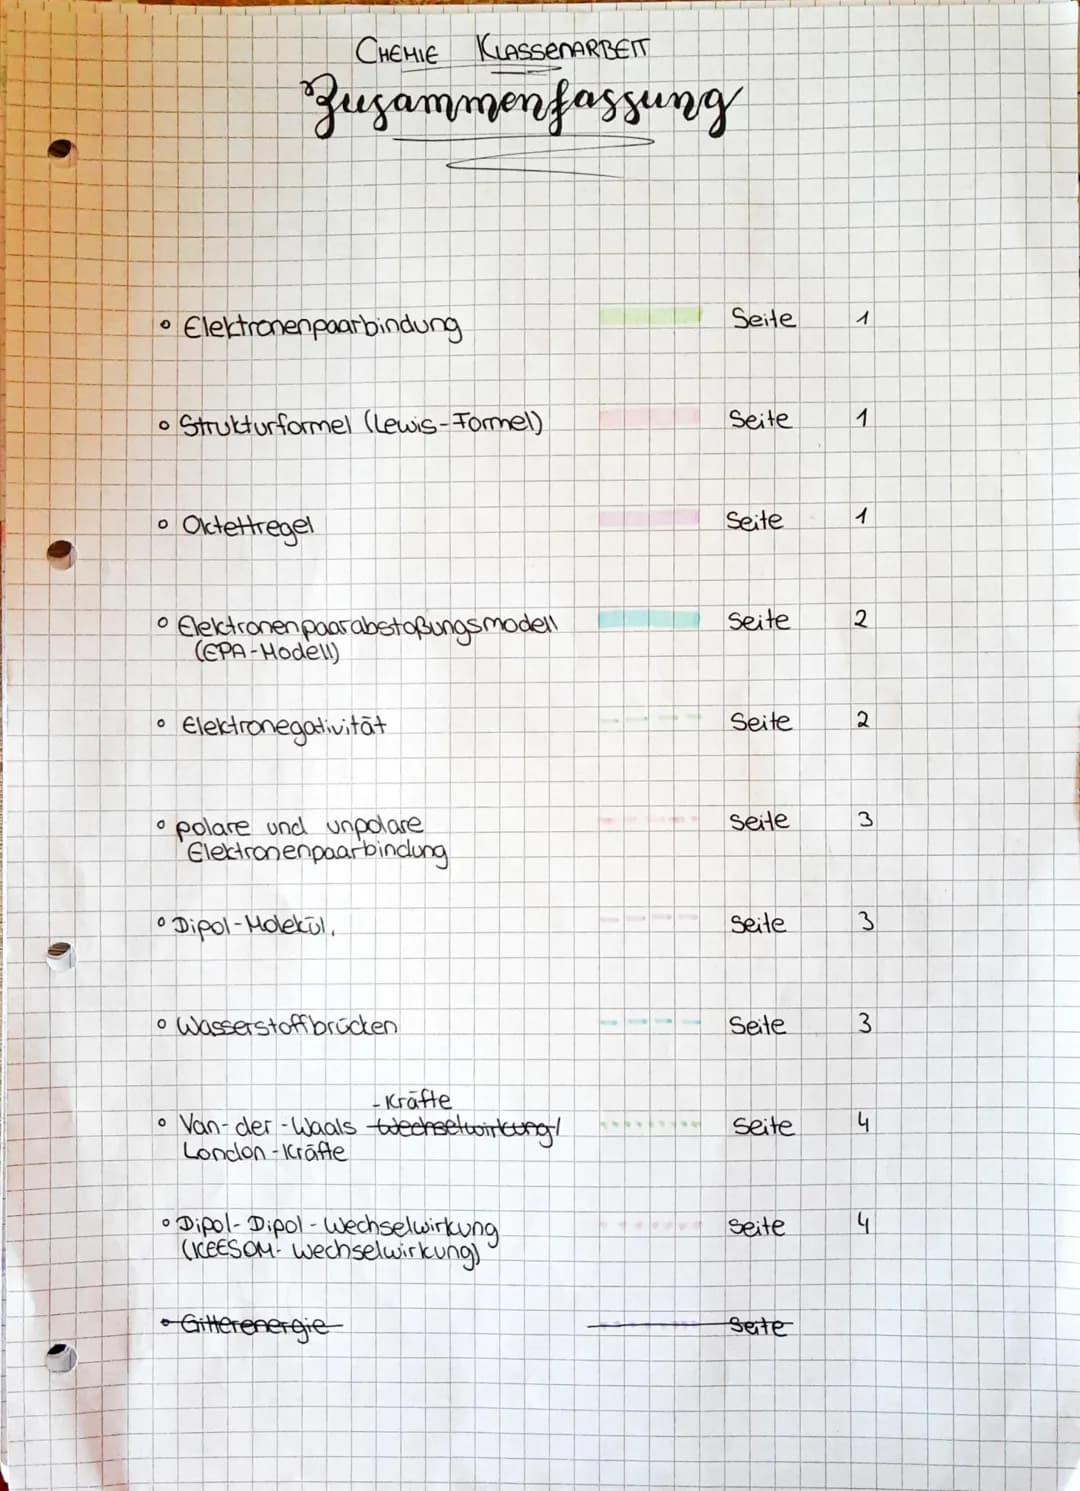 CHEMIE KLASSENARBEIT
Zusammenfassung
∘ Elektronenpaarbindung Seite 1
∘ Strukturformel (Lewis-Formel) Seite 1
∘ Oktettregel Seite 1
∘ Elektronenpaarabstoßungsmodell Seite 2
(EPA-Modell)
∘ Elektronegativität Seite 2
∘ polare und unpolare Seite 3
Elektronenpaarbindung
∘ Dipol-Molekül, Seite 3
∘ Wasserstoffbrücken Seite 3
-Kräfte
∘ Van-der-Waals -Wechselwirkung/ Seite 4
London-Kräfte
∘ Dipol-Dipol-Wechselwirkung Seite 4
(KEESOM-Wechselwirkung)
∘ Gitterenergie Seite